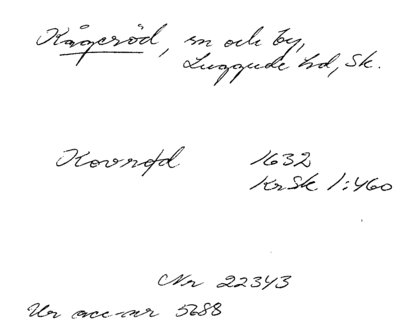 Kågeröd, sn och by,
Luggude hd, Sk.
Kovrød 1632
KrSk 1:460
Nr 22343
Ur acc-nr 5688